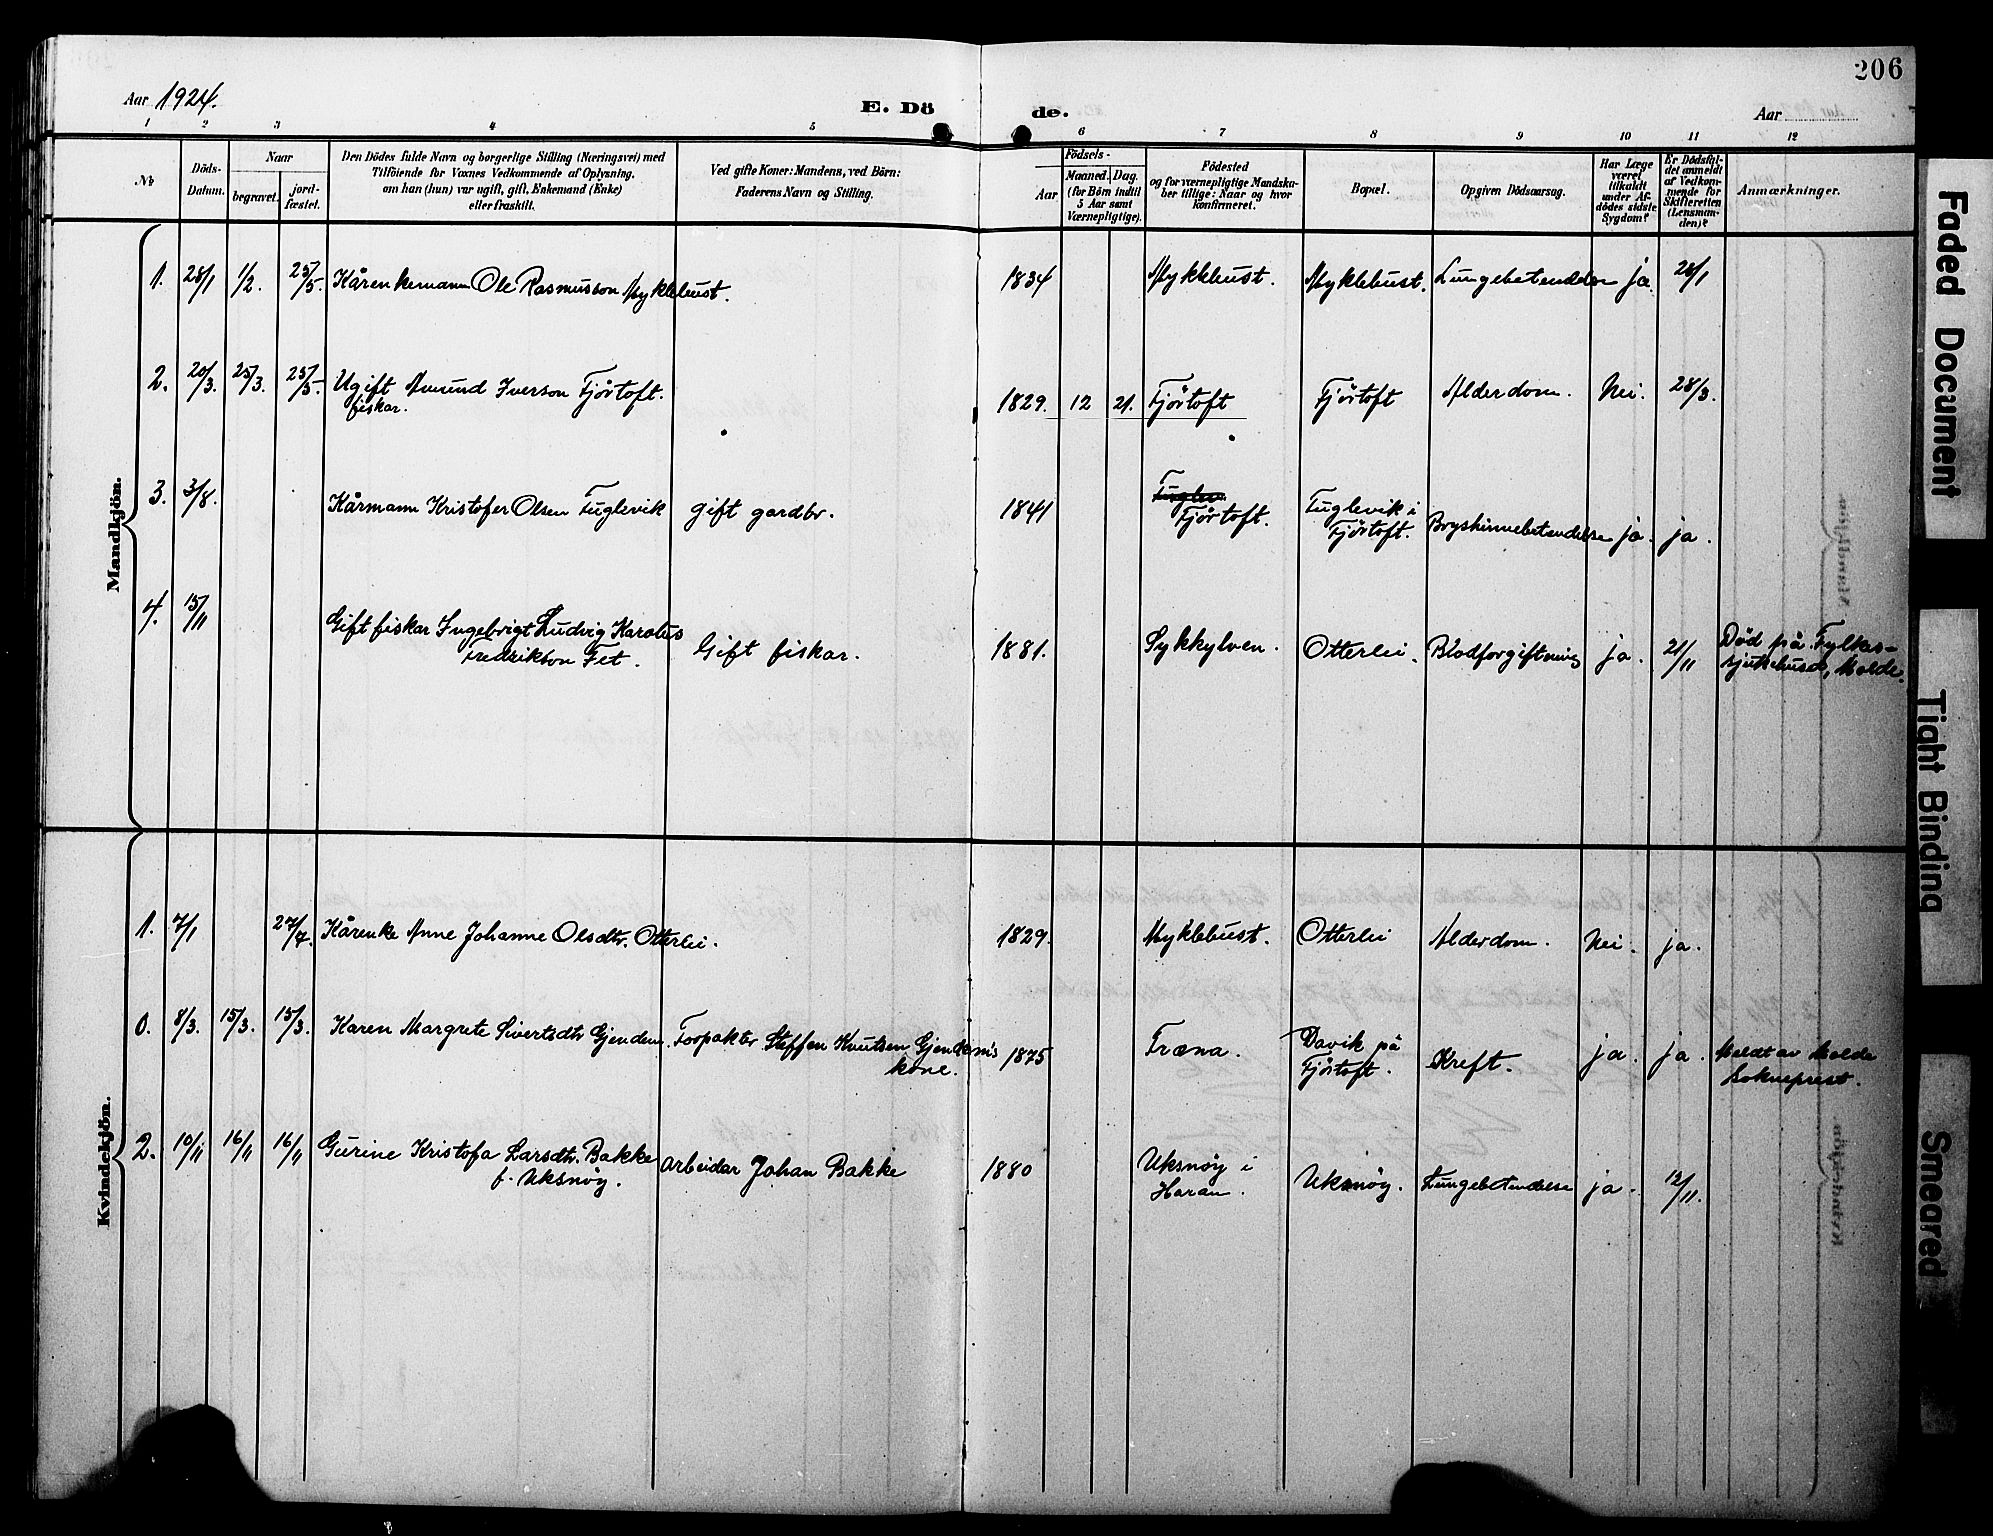 206
Aar 1924.
E. Dö
de.
Aar
1 2 3 4 5 6 7 8 9 10 11 12
No
Döds-
Datum.
Naar
begravet.
jord-
fæstet.
Den Dödes fulde Navn og borgerlige Stilling (Næringsvei) med
Tilföiende for Voxnes Vedkommende af Oplysning,
om han (hun) var ugift, gift, Enkemand (Enke)
eller fraskilt.
Ved gifte Koner: Mandens, ved Börn:
Faderens Navn og Stilling.
Födsels-
Aar
Maaned.
Dag.
(for Börn indtil
5 Aar samt
Værnepligtige).
Födested
og for værnepligtige Mandska-
ber tillige: Naar og hvor
konfirmeret.
Bopæl.
Opgiven Dödsaarsag.
Har Læge
været
tilkaldt
under Af-
dödes sidste
Sygdom?
Er Dödsfal-
det anmeldt
af Vedkom-
mende for
Skifteretten
(Lensman-
den)?
Anmærkninger.
Mandkjön.
1. 28/1 1/2. 25/5. Kårenkemann Ole Rasmusson Myklebust. 1834 Myklebust. Myklebust. Lungebetendelse ja. 28/1
2. 20/3. 25/3. 25/5. Ugift Amund Iverson Fjörtoft. 1829. 12 21. Fjörtoft Fjörtoft Alderdom. Nei. 28/3.
fiskar.
3. 3/8. Kårmann Kristofer Olsen Fuglevik gift gardbr. 1841 Fuglev Fuglevik i Bryshinnebetendelse ja. ja.
Fjörtoft. Fjörtoft.
4. 15/11 Gift fiskar Ingebrigt Ludvig Karolus Gift fiskar. 1881. Sykkylven. Otterlei. Blodforgiftning ja. 21/11 Död på Fylkes-
Fredrikson Fet. sjukehuset, Molde.
Kvindekjön.
1. 7/1 27/7. Kårenke Anne Johanne Olsdtr. Otterlei. 1829. Myklebust. Otterlei Alderdom. Nei. ja.
0. 8/3. 15/3. 15/3. Karen Margrete Sivertsdtr Gjendem. Forpakter Steffen Knutsen Gjendems 1875 Træna. Davik på Kreft. ja. ja. Meldt av Molde
kone. Fjörtoft. sokneprest.
2. 10/11 16/11 16/11 Gurine Kristofa Larsdtr. Bakke arbeidar Johan Bakke 1880 Uksnöy i Uksnöy. Lungebetendelse ja. 12/11.
f. Uksnöy. Haram.
Faded Document
Tight Binding
Smeared